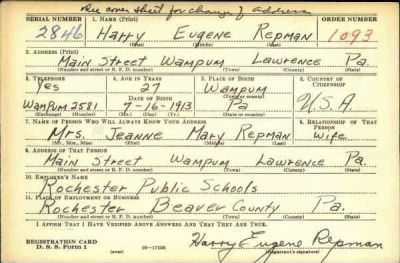 See cover sheet for change of address
SERIAL NUMBER 1. NAME (Print) ORDER NUMBER
2846 Harry Eugene Repman 1093
(First) (Middle) (Last)
2. ADDRESS (Print)
Main Street Wampum Lawrence Pa.
(Number and street or R. F. D. number) (Town) (County) (State)
3. TELEPHONE 4. AGE IN YEARS 5. PLACE OF BIRTH 6. COUNTRY OF CITIZENSHIP
Yes 27 Wampum
DATE OF BIRTH (Town or county)
Wampum 2581 7-16-1913 Pa U.S.A.
(Exchange) (Number) (Mo.) (Day) (Yr.) (State or country)
7. NAME OF PERSON WHO WILL ALWAYS KNOW YOUR ADDRESS 8. RELATIONSHIP OF THAT PERSON
Mrs. Jeanne Mary Repman Wife
(Mr., Mrs., Miss) (First) (Middle) (Last)
9. ADDRESS OF THAT PERSON
Main Street Wampum Lawrence Pa.
(Number and street or R. F. D. number) (Town) (County) (State)
10. EMPLOYER'S NAME
Rochester Public Schools
11. PLACE OF EMPLOYMENT OR BUSINESS
Rochester Beaver County Pa.
(Number and street or R. F. D. number) (Town) (County) (State)
I AFFIRM THAT I HAVE VERIFIED ABOVE ANSWERS AND THAT THEY ARE TRUE.
REGISTRATION CARD
D. S. S. Form 1 (over) 16—17105
Harry Eugene Repman
(Registrant's signature)